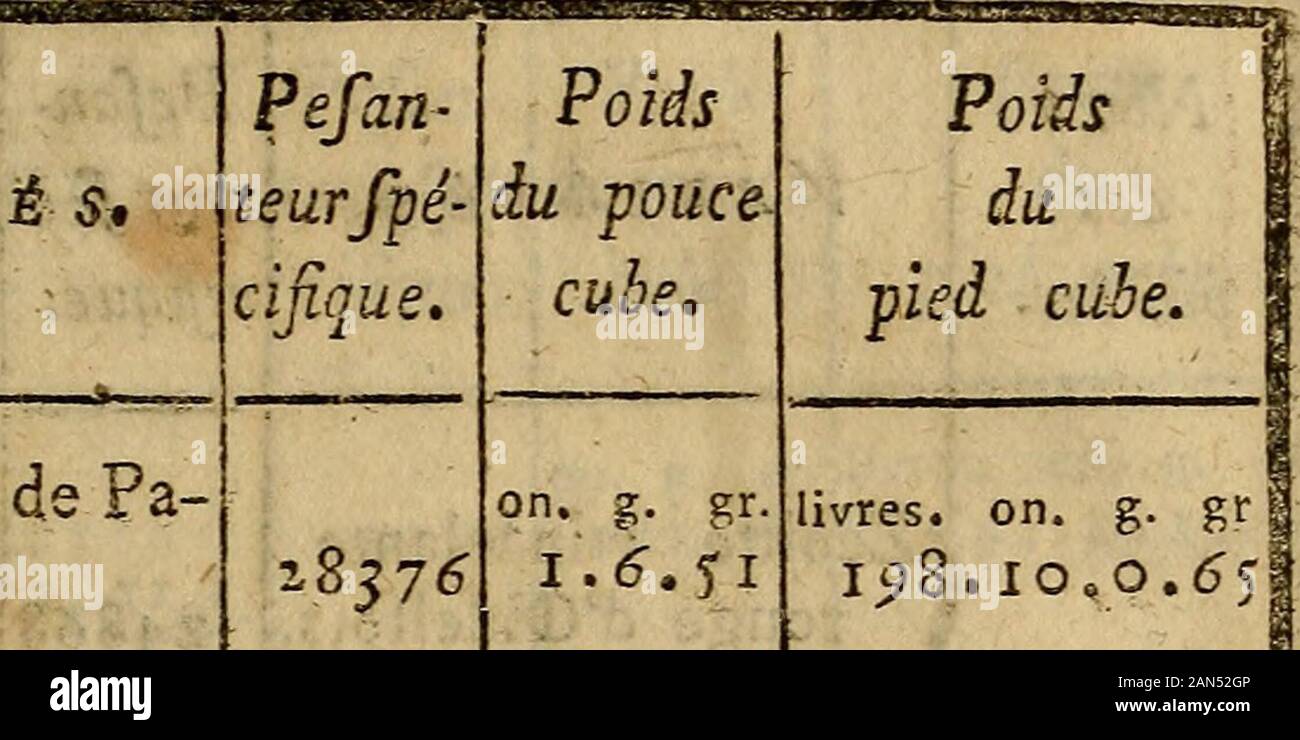 É s.
Peſan-
teur ſpé-
cifique.
Poids
du pouce
cube.
Poids
du
pied cube.
de Pa-
28376
on. g. gr.
1.6.51
livres. on. g. gr
198.10.0.65
alamy
Image ID: 2AN52GP
www.alamy.com